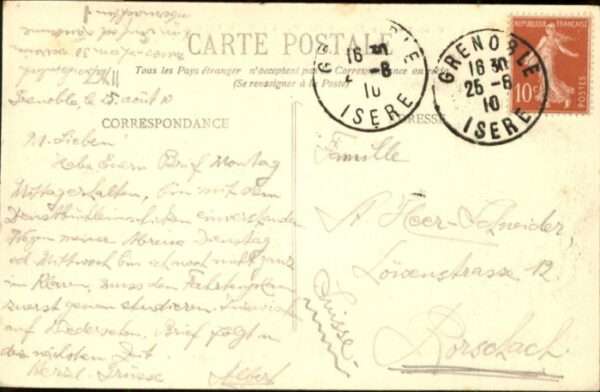 CARTE POSTALE
Tous les Pays étranger n'acceptent pas la Correspondance au recto
(Se renseigner à la Poste)
CORRESPONDANCE
ADRESSE
Grenoble, le 25. août 10
M. Lieben!
Habe Euern Brief Montag
Mittag erhalten, bin mit dem
einverstanden
Wegen meiner Abreise Dienstag
od. Mittwoch bin ich noch nicht ganz
im Klaren, muss den Fahrtenplan
zuerst genau studieren. Inzwischen
auf Wiedersehen. Brief folgt in
der nächsten Zeit.
Herzl. Grüsse Albert
Famille
A Heer-Schneider,
Löwenstrasse 12.
Rorschach
Suisse.
GRENOBLE
16 35
25 -8
10
ISERE
GRENOBLE
16 35
25 -8
10
ISERE
REPUBLIQUE FRANÇAISE
10c
POSTES